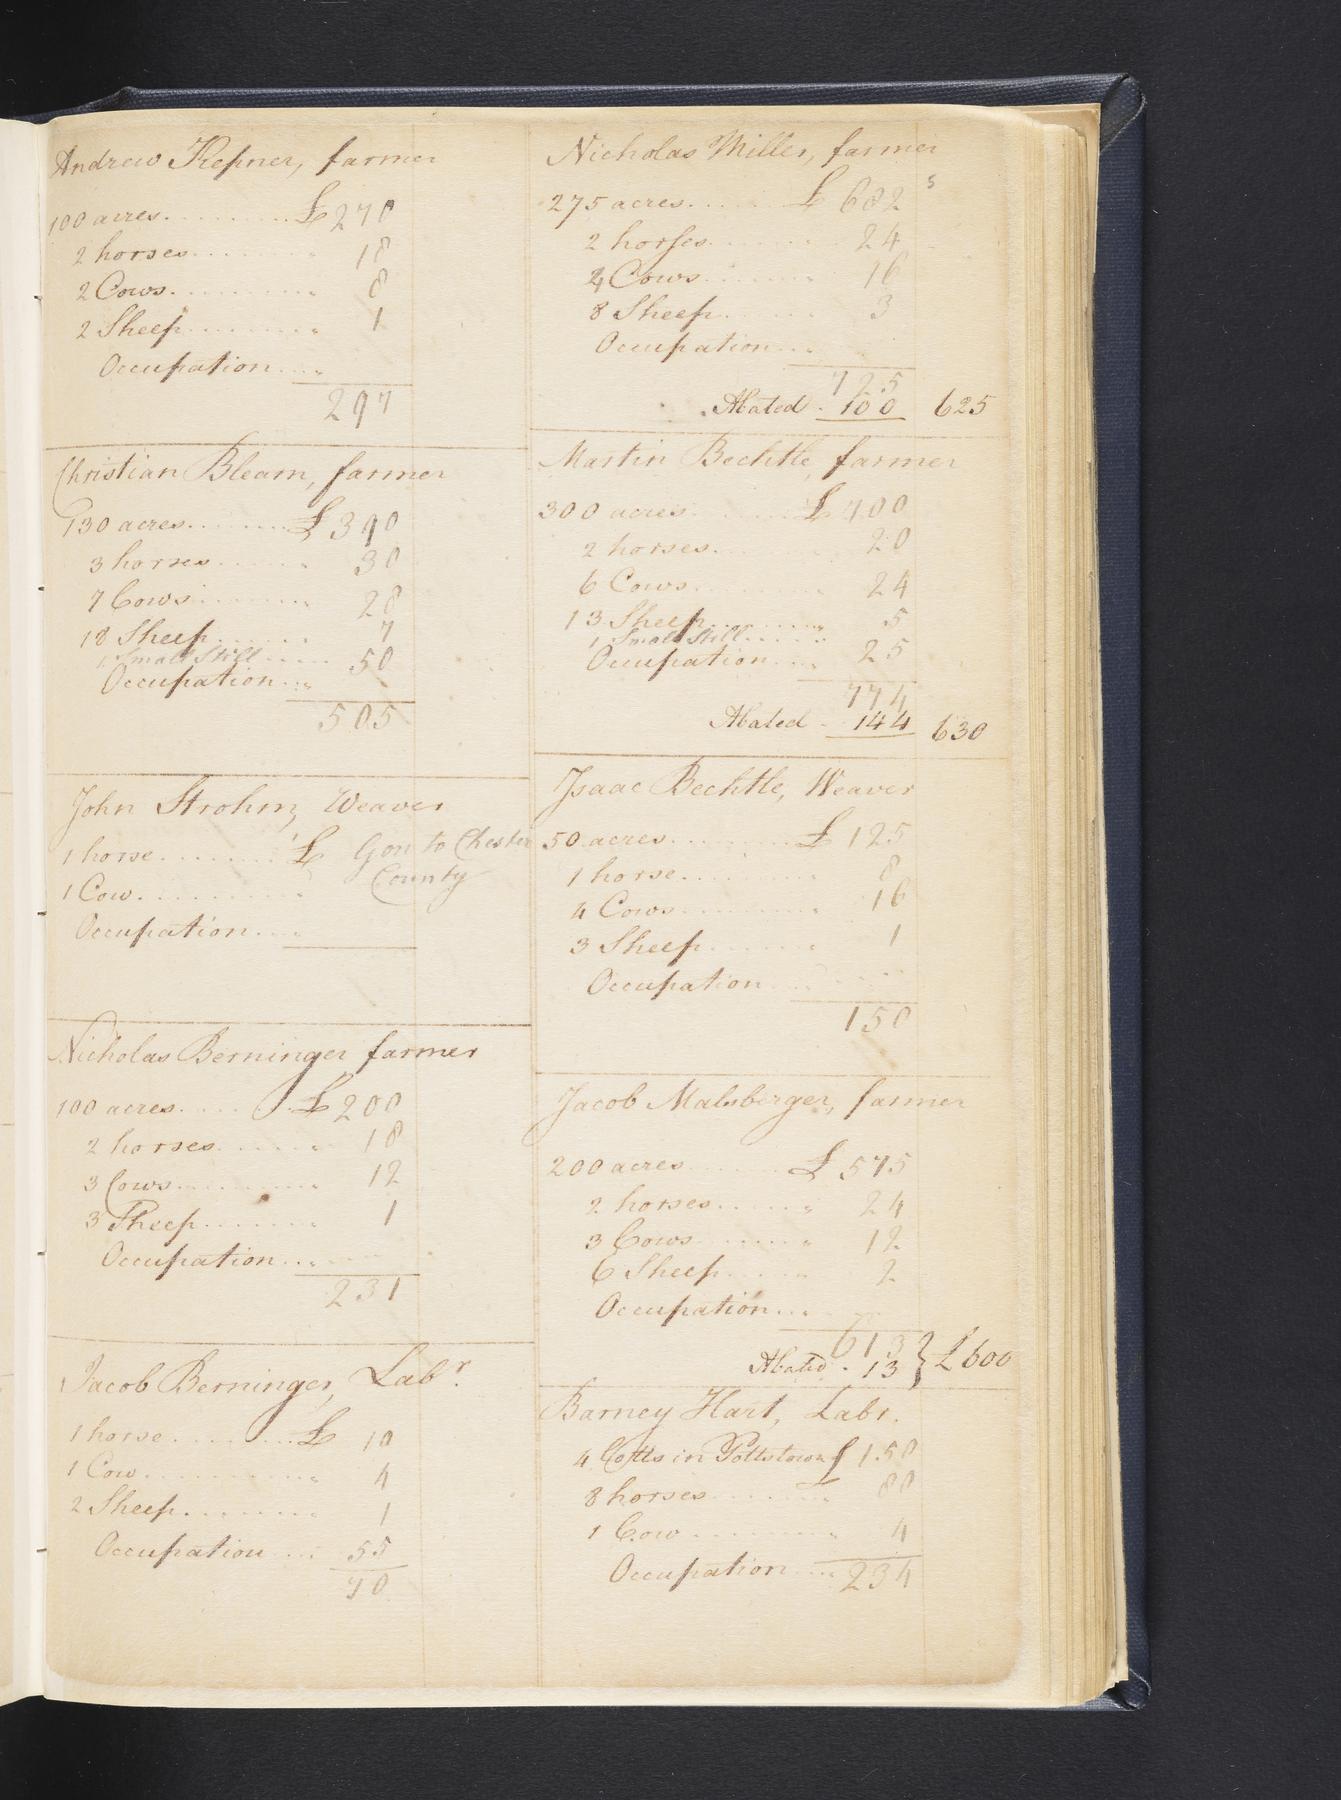 Andrew Kepner, farmer
100 acres.........£270
2 horses......... 18
2 Cows......... 8
2 Sheep......... 1
Occupation....
297
Christian Bleam, farmer
130 acres.........£390
3 horses...... 30
7 Cows......... 28
18 Sheep...... 7
1 Small Still..... 50
Occupation....
505
John Strohm, Weaver
1 horse.........£ Gon to Chester
1 Cow......... County
Occupation....
Nicholas Berninger farmer
100 acres.........£200
2 horses...... 18
3 Cows......... 12
3 Sheep....... 1
Occupation....
231
Jacob Berninger, Labr.
1 horse.........£ 10
1 Cow......... 4
2 Sheep......... 1
Occupation.... 55
70
Nicholas Miller, farmer
275 acres......£682 5
2 horses...... 24
4 Cows......... 16
8 Sheep...... 3
Occupation....
725
Abated - 100 625
Martin Bechtle, farmer
300 acres.........£700
2 horses...... 20
6 Cows......... 24
13 Sheep......... 5
1 Small Still......
Occupation.... 25
774
Abated - 144 630
Isaac Bechtle, Weaver
50 acres.........£125
1 horse......... 8
4 Cows......... 16
3 Sheep...... 1
Occupation....
150
Jacob Malsberger, farmer
200 acres......£575
2 horses...... 24
3 Cows...... 12
6 Sheep..... 2
Occupation....
613
Abated - 13 } £600
Barney Hart, Labr.
4 Lotts in Pottstown £150
8 horses...... 80
1 Cow......... 4
Occupation.... 234